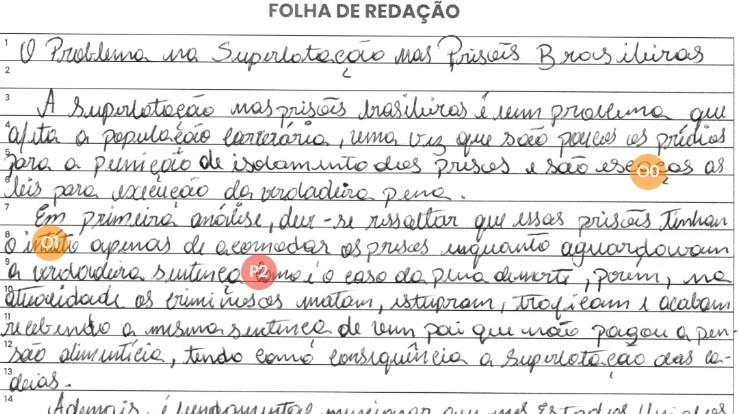 FOLHA DE REDAÇÃO
1 O Problema na Superlotação nas Prisões Brasileiras
2
3 A superlotação nas prisões brasileiras é um problema que
4 afeta a população carcerária, uma vez que são poucos os prédios
5 para a punição de isolamento dos presos e são escaças as O0
6 leis para execução da verdadeira pena.
7 Em primeira análise, deve-se ressaltar que essas prisões tinham
8 o O1 apenas de acomodar os presos enquanto aguardavam
9 a verdadeira sentença P2 como é o caso da pena de morte, porém, na
10 atualidade os criminosos matam, estupram, traficam e acabam
11 recebendo a mesma sentença de um pai que não pagou a pen-
12 são alimentícia, tendo como consequência a superlotação das ca-
13 deias.
14 Ademais, é fundamental mencionar que nos Estados Unidos